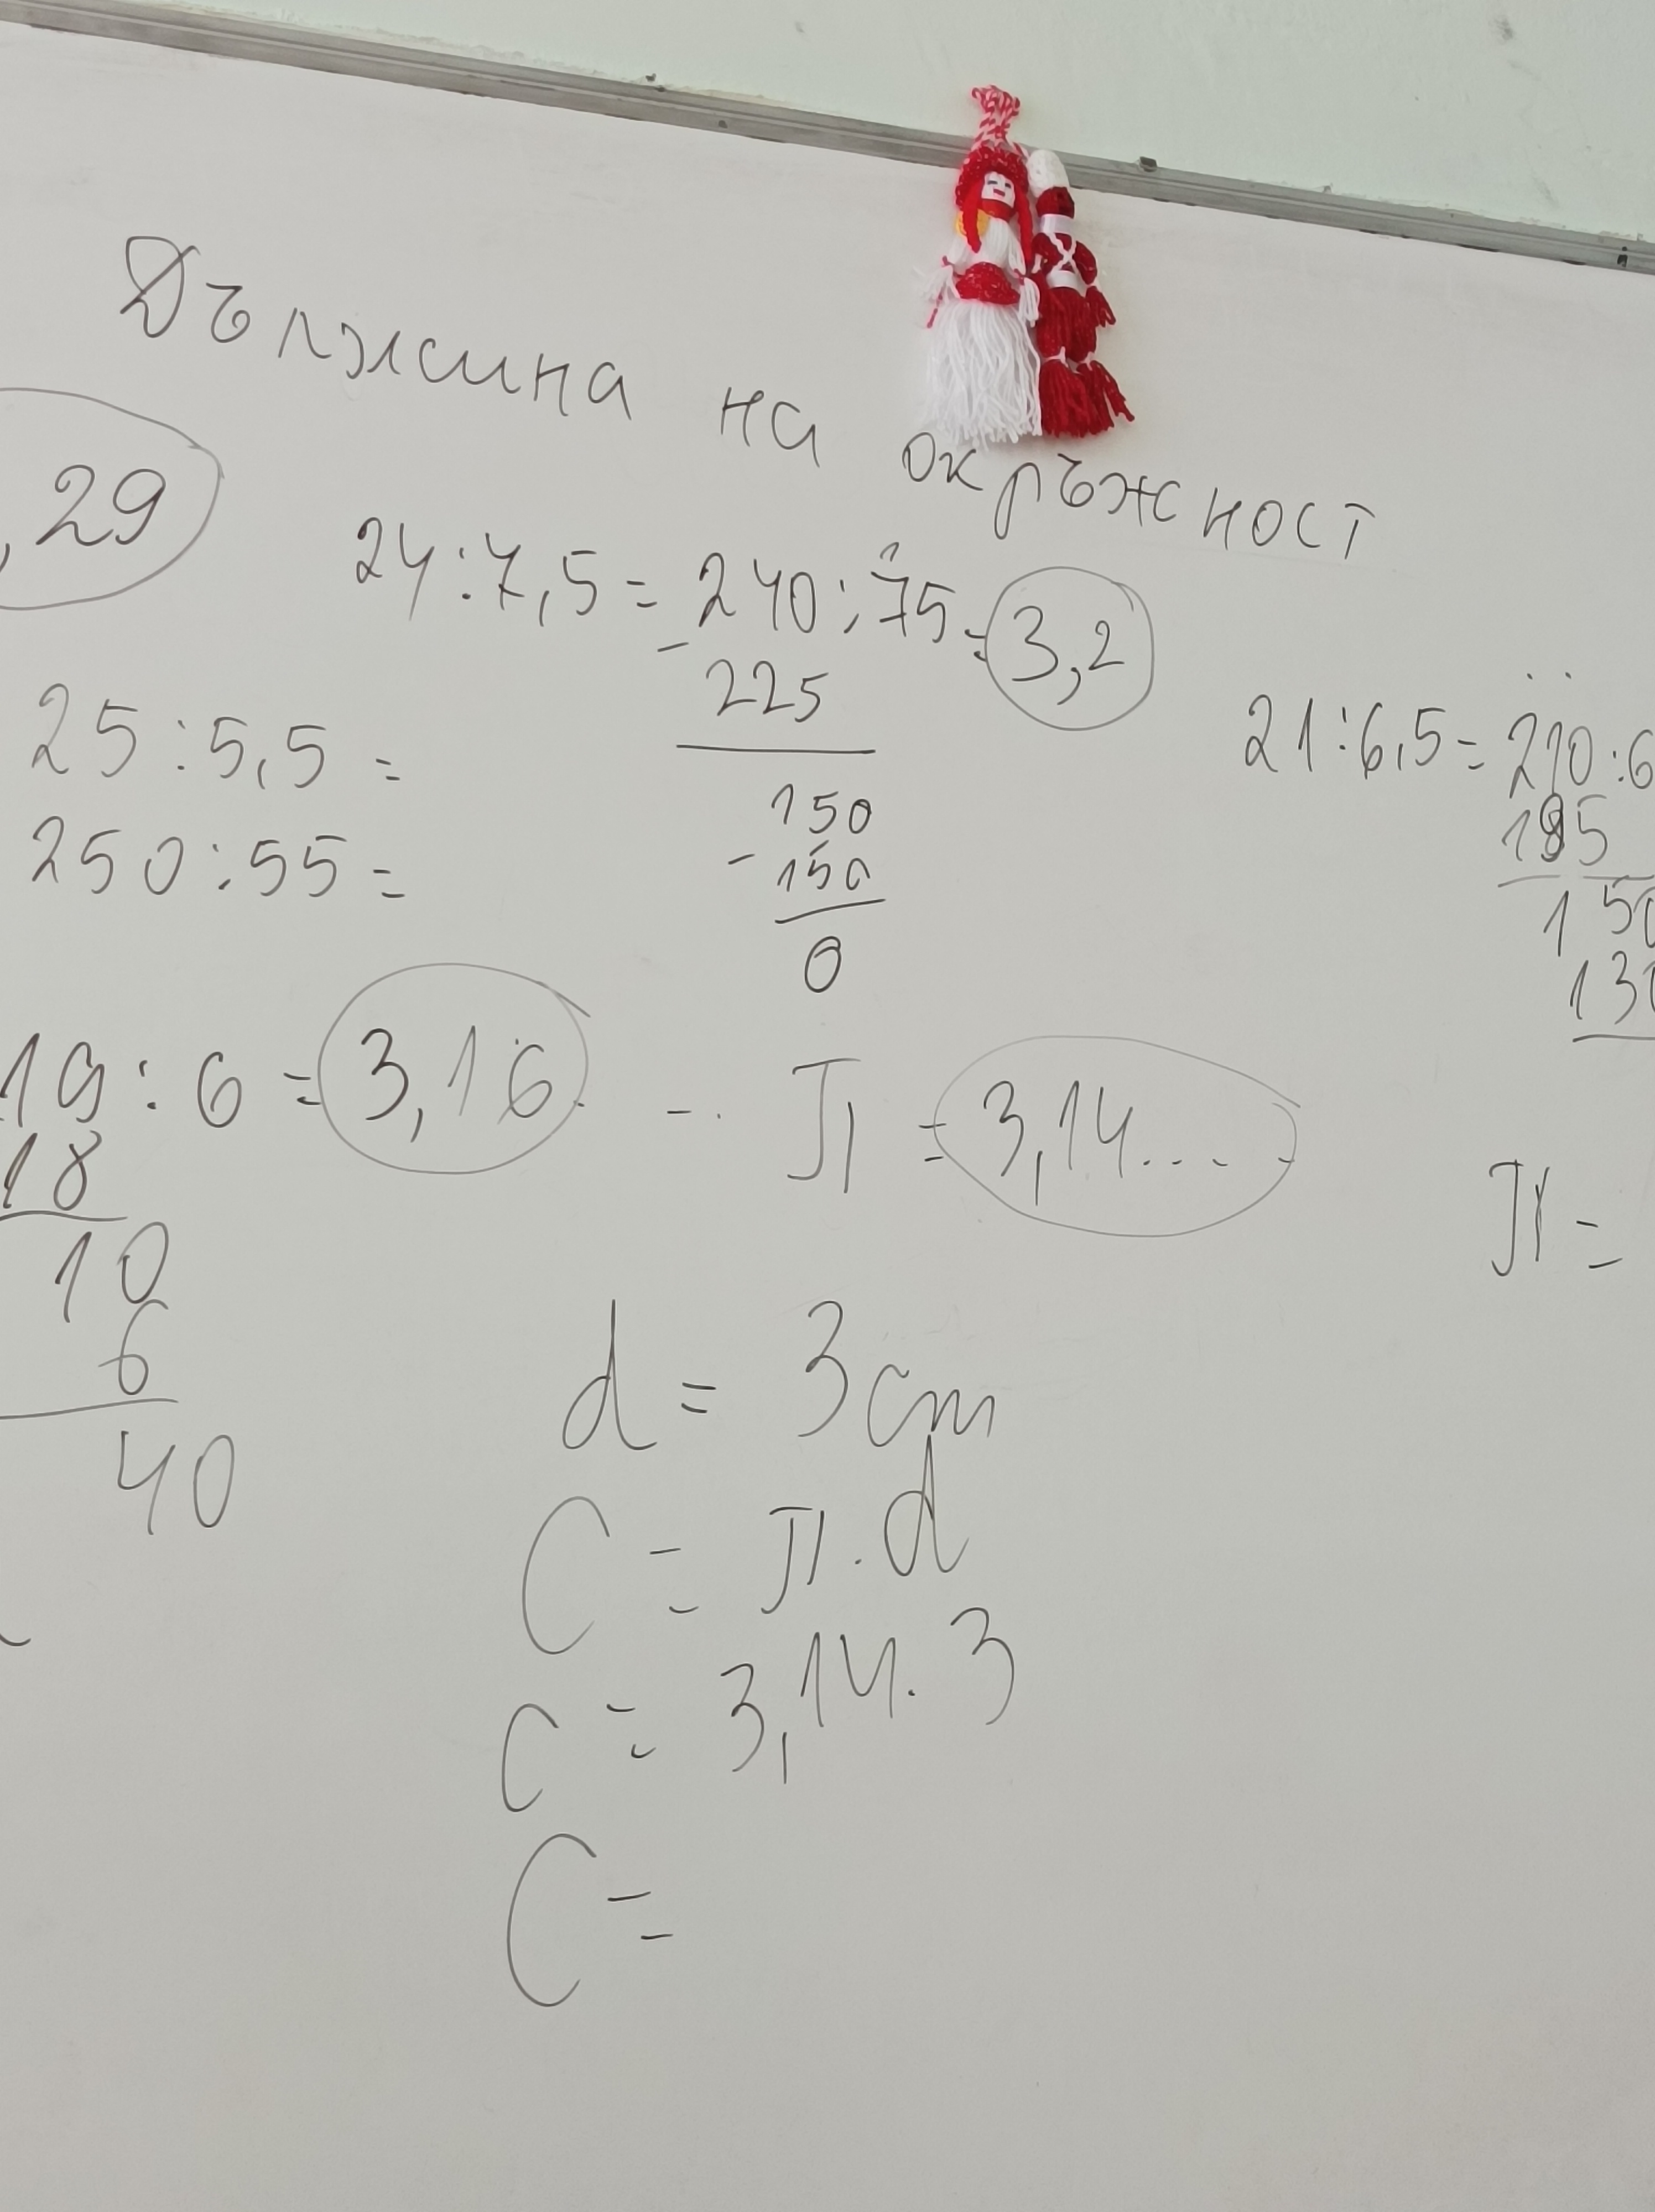 Дължина на окръжност
, 29
24 : 7,5 = 240 : 75 = 3,2
- 225
150
- 150
0
25 : 5,5 =
250 : 55 =
21 : 6,5 = 210 : 6
195
150
130
19 : 6 = 3,16
18
10
6
40
П = 3,14...
П =
d = 3 cm
C = П . d
C = 3,14 . 3
C =